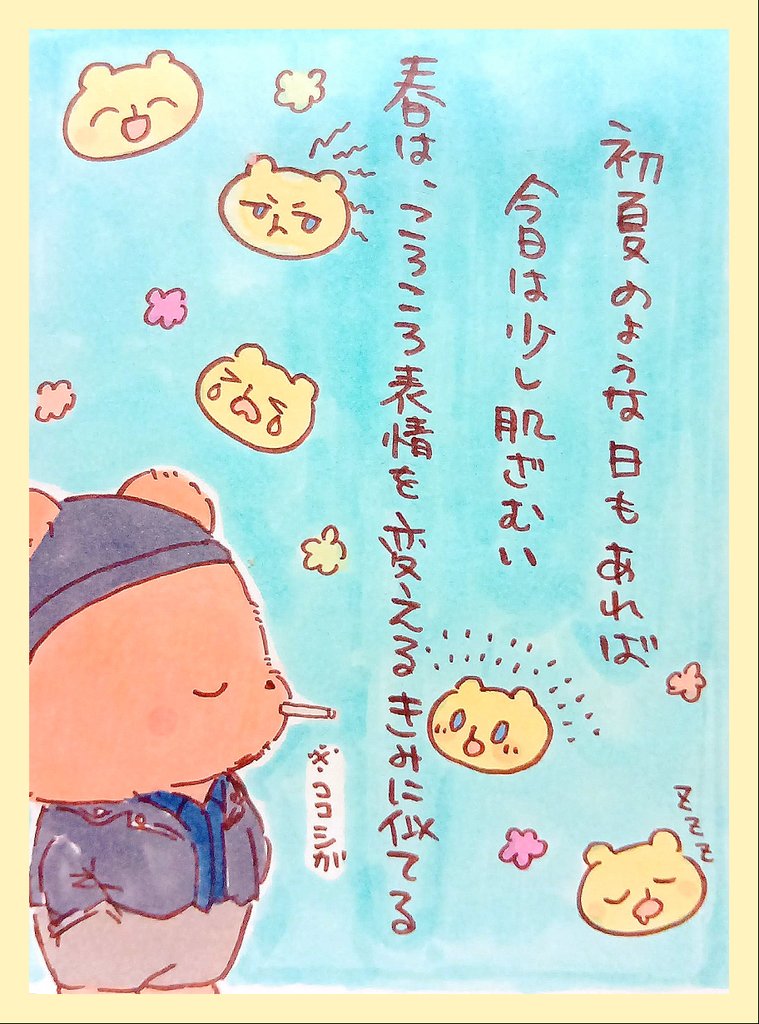 初夏のような日もあれば
今日は少し肌ざむい
春は、ころころ表情を変えるきみに似てる
※ココシガ
zzz